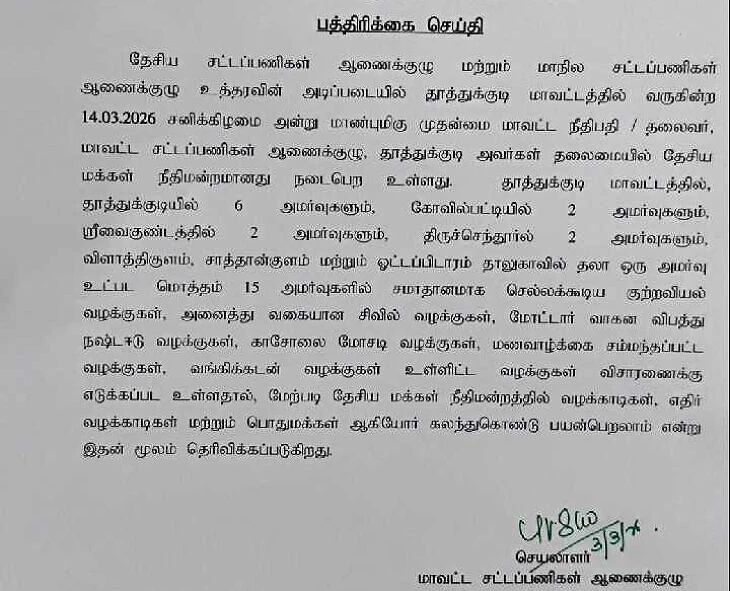 பத்திரிக்கை செய்தி
தேசிய சட்டப்பணிகள் ஆணைக்குழு மற்றும் மாநில சட்டப்பணிகள்
ஆணைக்குழு உத்தரவின் அடிப்படையில் தூத்துக்குடி மாவட்டத்தில் வருகின்ற
14.03.2026 சனிக்கிழமை அன்று மாண்புமிகு முதன்மை மாவட்ட நீதிபதி / தலைவர்,
மாவட்ட சட்டப்பணிகள் ஆணைக்குழு, தூத்துக்குடி அவர்கள் தலைமையில் தேசிய
மக்கள் நீதிமன்றமானது நடைபெற உள்ளது. தூத்துக்குடி மாவட்டத்தில்,
தூத்துக்குடியில் 6 அமர்வுகளும், கோவில்பட்டியில் 2 அமர்வுகளும்,
ஸ்ரீவைகுண்டத்தில் 2 அமர்வுகளும், திருச்செந்தூர்ல் 2 அமர்வுகளும்,
விளாத்திகுளம், சாத்தான்குளம் மற்றும் ஓட்டப்பிடாரம் தாலுகாவில் தலா ஒரு அமர்வு
உட்பட மொத்தம் 15 அமர்வுகளில் சமாதானமாக செல்லக்கூடிய குற்றவியல்
வழக்குகள், அனைத்து வகையான சிவில் வழக்குகள், மோட்டார் வாகன விபத்து
நஷ்டஈடு வழக்குகள், காசோலை மோசடி வழக்குகள், மணவாழ்க்கை சம்மந்தப்பட்ட
வழக்குகள், வங்கிக்கடன் வழக்குகள் உள்ளிட்ட வழக்குகள் விசாரணைக்கு
எடுக்கப்பட உள்ளதால், மேற்படி தேசிய மக்கள் நீதிமன்றத்தில் வழக்காடிகள், எதிர்
வழக்காடிகள் மற்றும் பொதுமக்கள் ஆகியோர் கலந்துகொண்டு பயன்பெறலாம் என்று
இதன் மூலம் தெரிவிக்கப்படுகிறது.
செயலாளர்
மாவட்ட சட்டப்பணிகள் ஆணைக்குழு